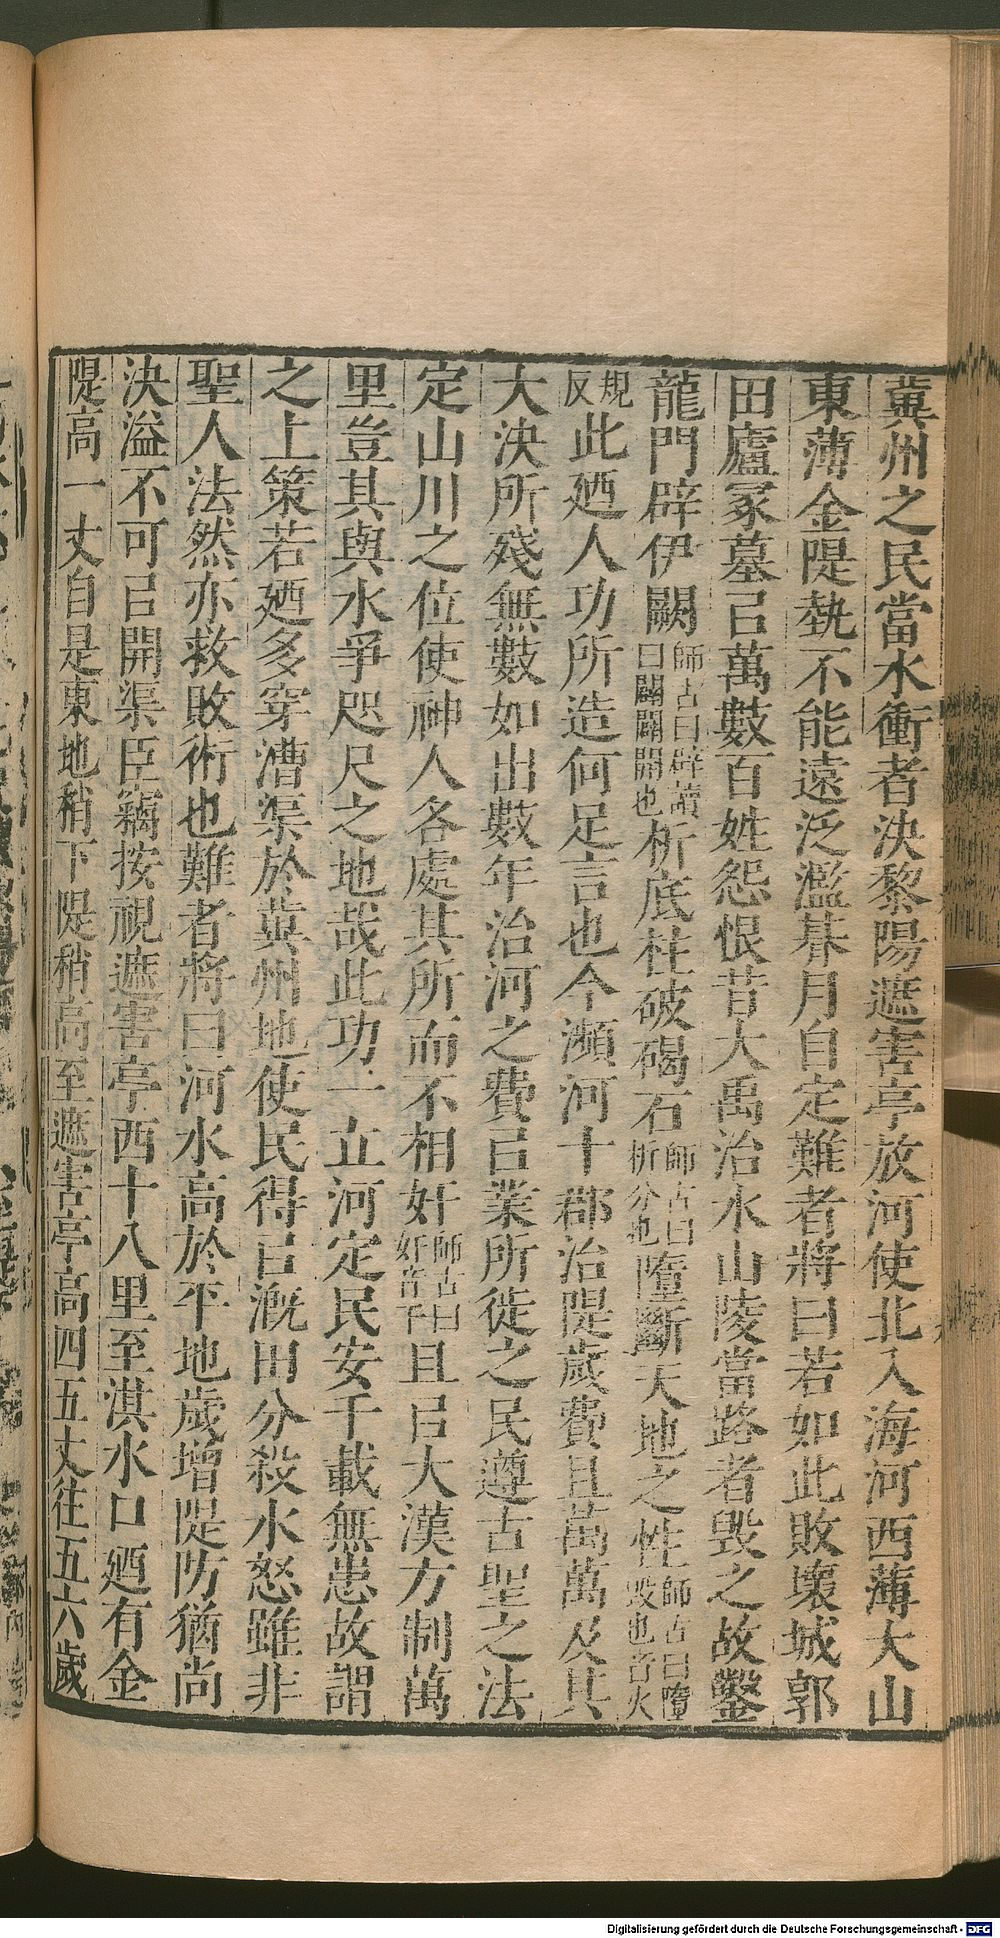 冀州之民當水衝者決黎陽遮害亭放河使北入海河西薄大山
東薄金隄埶不能遠泛濫朞月自定難者將曰若如此敗壞城郭
田廬冢墓㠯萬數百姓怨恨昔大禹治水山陵當路者毀之故鑿
龍門辟伊闕師古曰辟讀曰闢闢開也析底柱破碣石師古曰析分也墮斷天地之性師古曰墮毀也音火
規反此廼人功所造何足言也今瀕河十郡治隄歲費且萬萬及其
大決所殘無數如出數年治河之費㠯業所徙之民遵古聖之法
定山川之位使神人各處其所而不相奸師古曰奸音干且㠯大漢方制萬
里豈其與水爭咫尺之地哉此功一立河定民安千載無患故謂
之上策若廼多穿漕渠於冀州地使民得㠯溉田分殺水怒雖非
聖人法然亦救敗術也難者將曰河水高於平地歲增隄防猶尚
決溢不可㠯開渠臣竊按視遮害亭西十八里至淇水口廼有金
隄高一丈自是東地稍下隄稍高至遮害亭高四五丈往五六歲
Digitalisierung gefördert durch die Deutsche Forschungsgemeinschaft - DFG